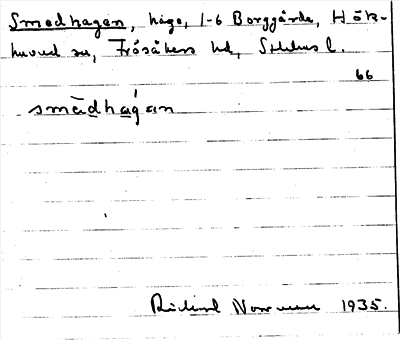 Smedhagen, hage, 1-6 Borggårde, Hök-
huvud sn, Frösåkers hd, Sthlms l.
66
smädhàgan
Rickard Norrman 1935.